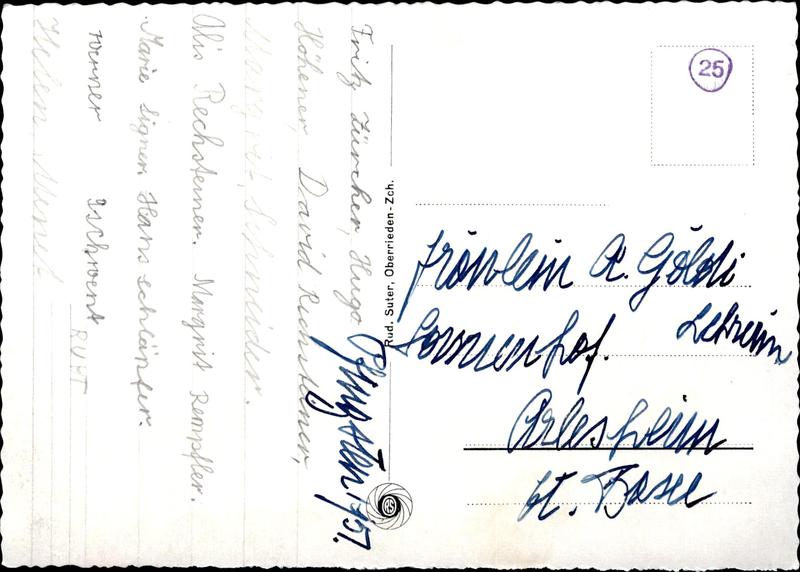 Fritz Zürcher, Hugo
Höhener, David Rechsteiner,
Margrit Schneider.
Alis Rechsteiner. Margrit Rempfler.
Marie Signer. Hans Schläpfer.
Werner Gschwent
RUFT
Helen
Pfingsten 1957.
Rud. Suter, Oberrieden-Zch.
25
Fräulein A. Göldi
Lehrerin
Sonnenhof.
Arlesheim
bt. Basel